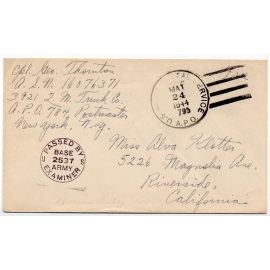 Cpl. Geo. Thornton
A.S.N. 16076371
3921 Q.M. Truck Co.
A.P.O. 784 Postmaster
New York, N.Y.
SERVICE
MAY
24
1944
795
U.S. A.P.O.
PASSED BY
BASE
2537
ARMY
EXAMINER
Miss Alva Klotter
5226 Magnolia Ave.
Riverside,
California